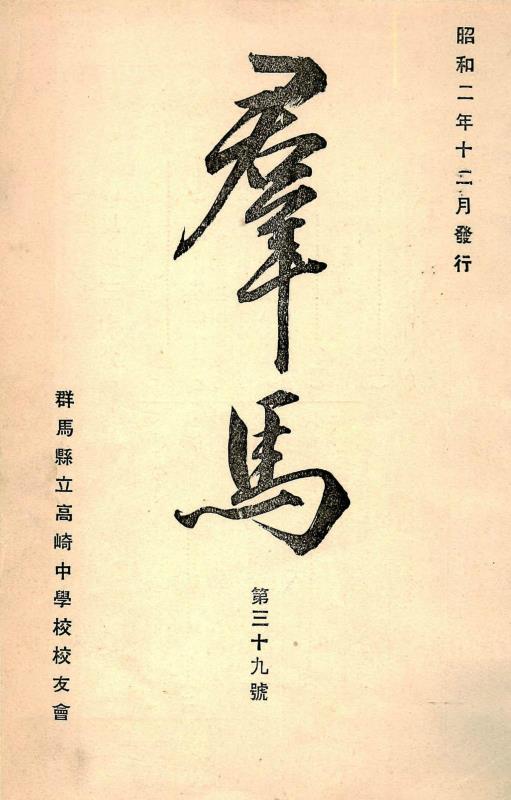 昭和二年十二月發行
羣馬
第三十九號
群馬縣立高崎中學校校友會